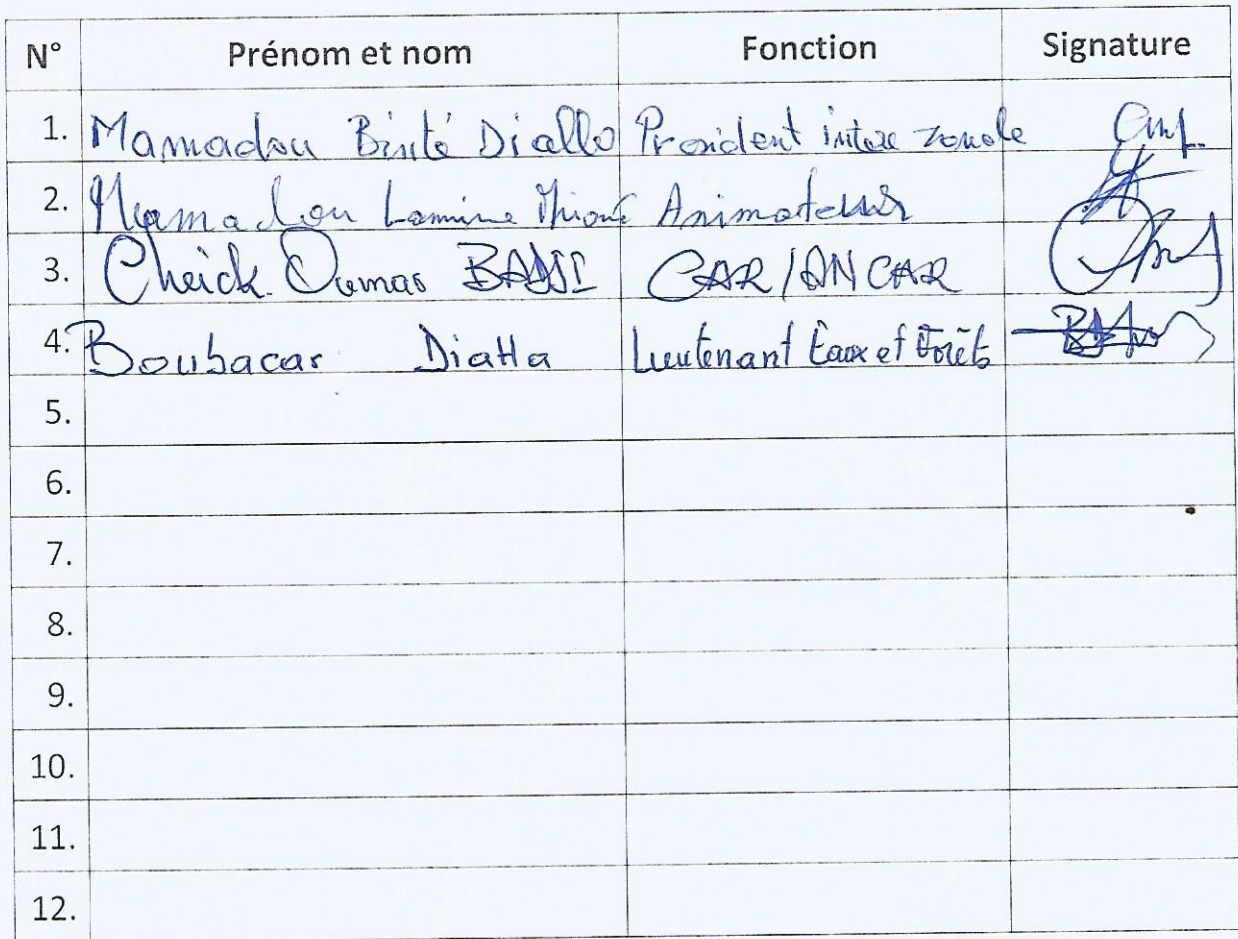 N° Prénom et nom Fonction Signature
1. Mamadou Binté Diallo President inter zonale
2. Mamadou Lamine Thioné Animateur
3. Cheick Oumar BADJI CAR/ANCAR
4. Boubacar Diatta Lieutenant Eaux et Forêts
5.
6.
7.
8.
9.
10.
11.
12.